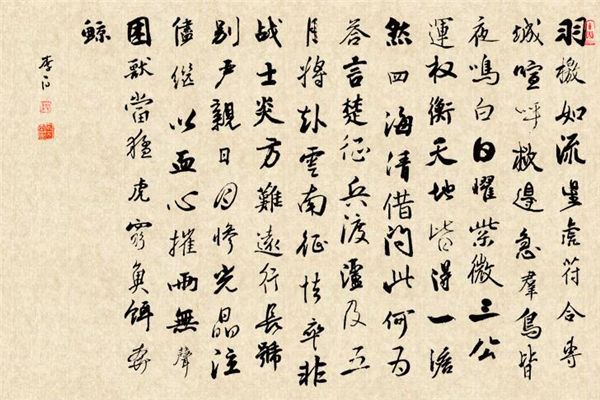 羽檄如流星虎符合専
城喧呼救邊急群鳥皆
夜鳴白日曜紫微三公
運权衡天地皆得一澹
然四海清借问此何为
荅言楚征兵渡瀘及五
月将赴雲南征怯卒非
战士炎方難遠行長號
别严親日月惨光晶泣
尽继以血心摧两無聲
困獸當猛虎窮魚餌奔
鲸
李白